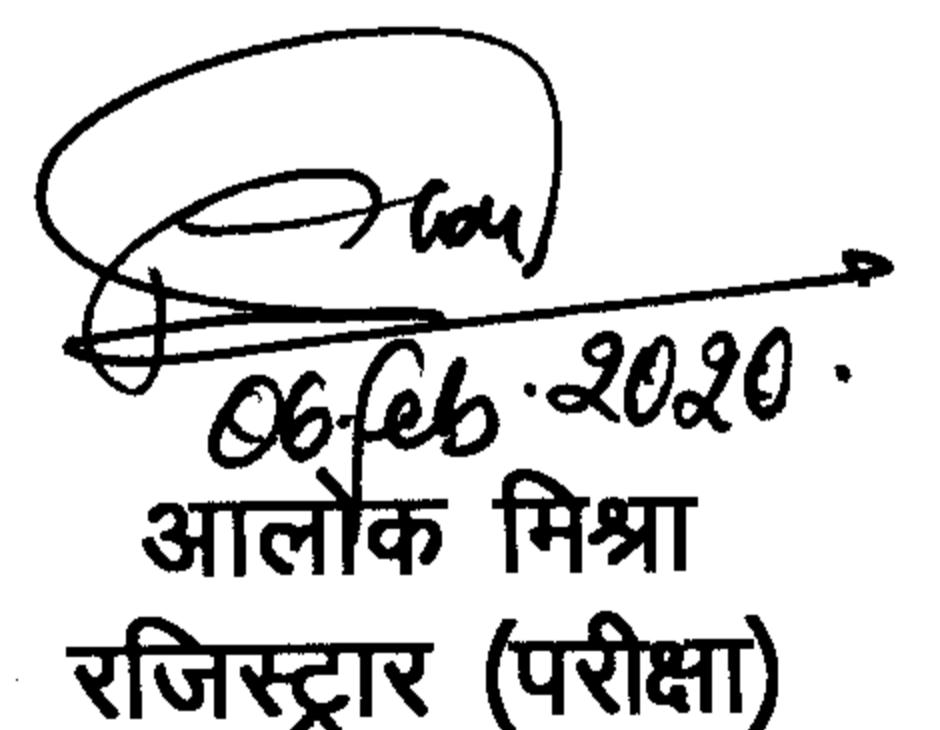 06.feb.2020.
आलोक मिश्रा
रजिस्ट्रार (परीक्षा)